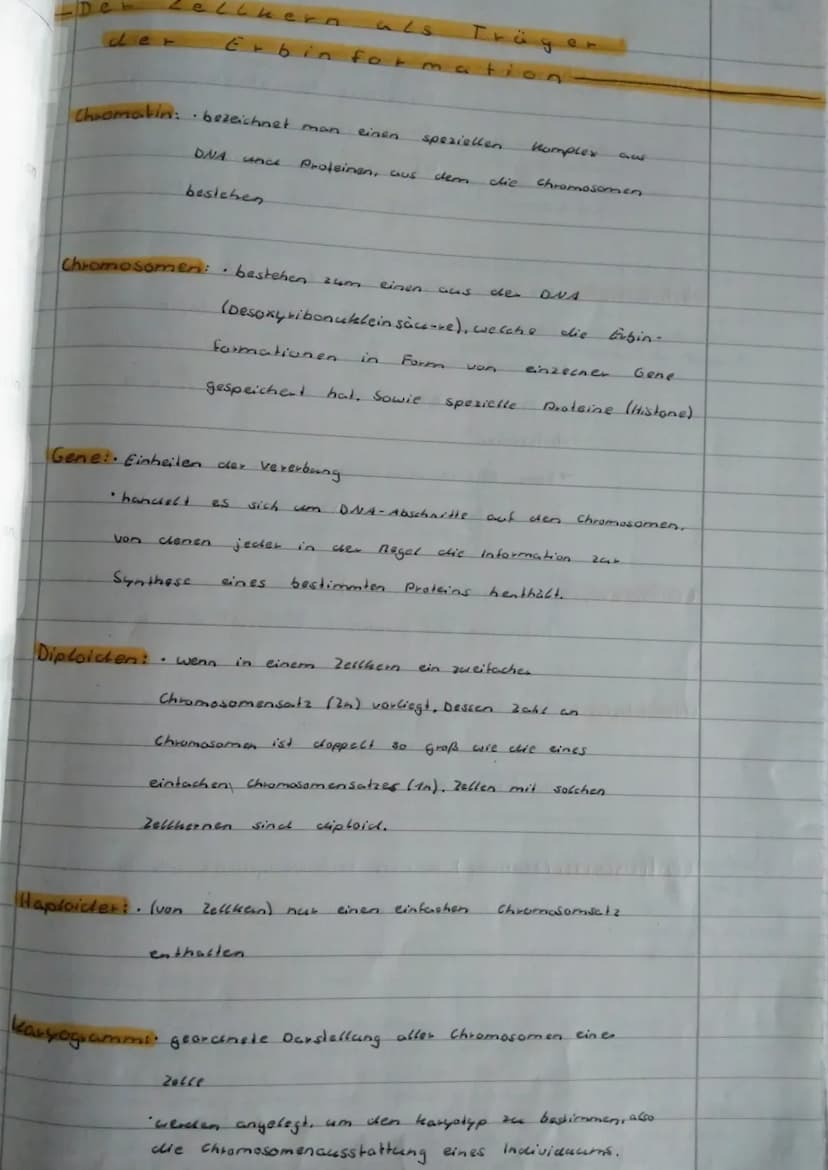 -Der Zellkern als Träger
der Erbinformation
Chromatin: · bezeichnet man einen speziellen Komplex aus
DNA und Proteinen, aus dem die Chromosomen
bestehen
Chromosomen: · bestehen zum einen aus der DNA
(Desoxyribonukleinsäure), welche die Erbin-
formationen in Form von einzelner Gene
gespeichert hat. Sowie spezielle Proteine (Histone)
Gene: · Einheiten der Vererbung
· handelt es sich um DNA-Abschnitte auf den Chromosomen,
von denen jeder in der Regel die Information zur
Synthese eines bestimmten Proteins henthält.
Diploiden: · wenn in einem Zellkern ein zweifacher
Chromosomensatz (2n) vorliegt. Dessen Zahl an
Chromosomen ist doppelt so groß wie die eines
einfachen Chromosomensatzes (1n). Zellen mit solchen
Zellkernen sind diploid.
Haploider: · (von Zellkern) nur einen einfachen Chromosomsatz
enthalten
Karyogramm: · geordnete Darstellung aller Chromosomen einer
Zelle
· werden angelegt, um den Karyotyp zu bestimmen, also
die Chromosomenausstattung eines Individuums.